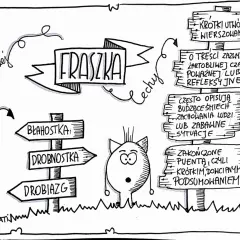 FRASZKA
cechy
KRÓTKI UTWÓR
WIERSZOWANY
O TREŚCI
ŻARTOBLIWEJ
POWAŻNEJ LUB
REFLEKSYJNEJ
CZĘSTO OPISUJĄ
BUDZĄCE ŚMIECH
ZACHOWANIA LUDZI
LUB ZABAWNE
SYTUACJE
ZAKOŃCZONE
PUENTĄ, CZYLI
KRÓTKIM, DOWCIPNYM
PODSUMOWANIEM
BŁAHOSTKA
DROBNOSTKA
DROBIAZG